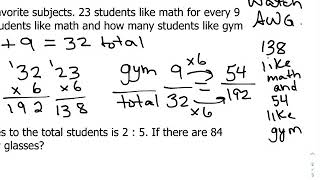 avorite subjects. 23 students like math for every 9
tudents like math and how many students like gym
+ 9 = 32 total
¹32 ¹23
× 6 ×6
192 138
gym 9 ×6 = 54
total 32 ×6 192
Watch
AWG.
138
like
math
and
54
like
gym
es to the total students is 2 : 5. If there are 84
glasses?